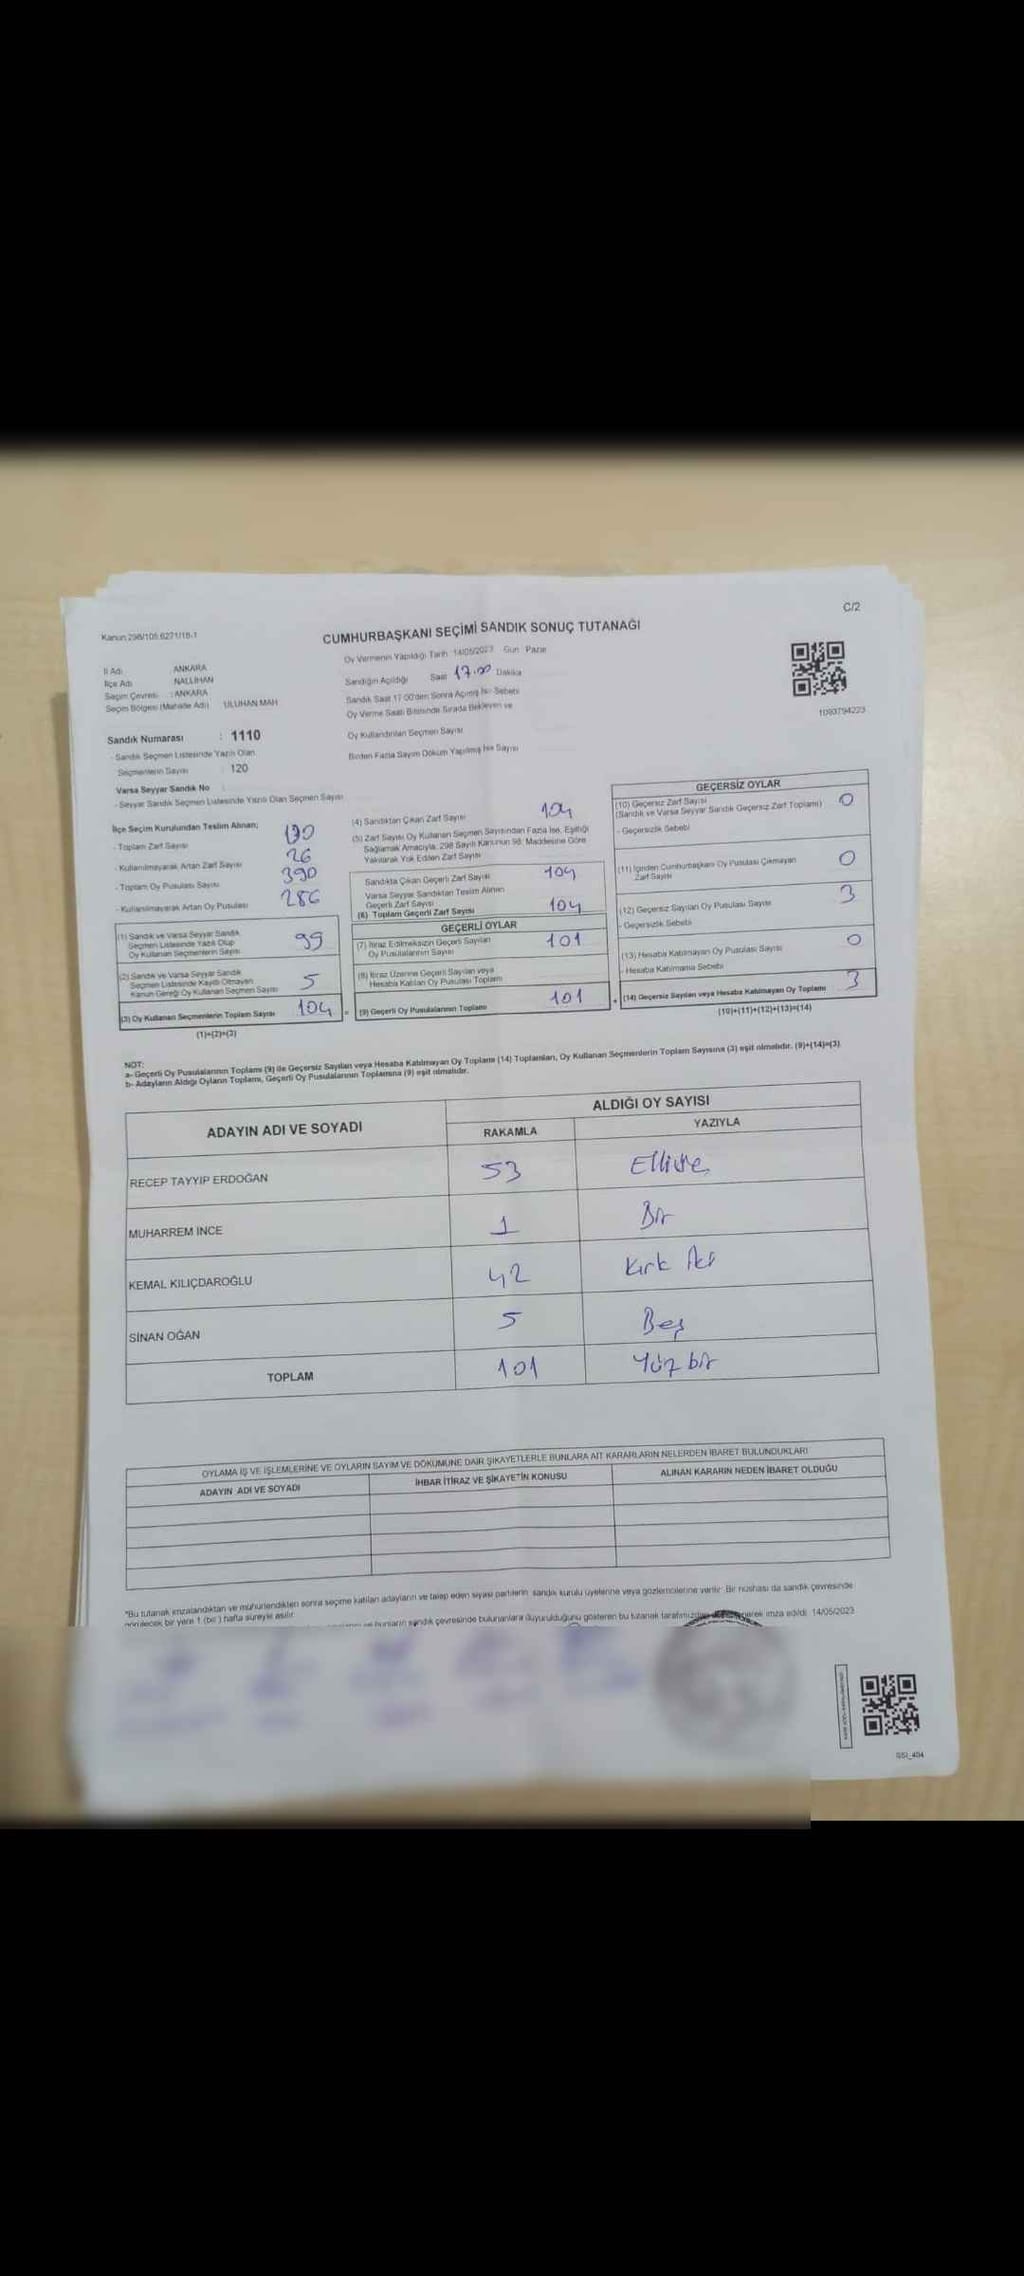 C/2
Kanun 298/105 6271/18-1
CUMHURBAŞKANI SEÇİMİ SANDIK SONUÇ TUTANAĞI
İl Adı : ANKARA
İlçe Adı : NALLIHAN
Seçim Çevresi : ANKARA
Seçim Bölgesi (Mahalle Adı) ULUHAN MAH
Oy Vermenin Yapıldığı Tarih 14/05/2023 Gün Pazar
Sandığın Açıldığı Saat 17.00 Dakika
Sandık Saat 17 00'den Sonra Açılmış İse Sebebi
Oy Verme Saati Bitiminde Sırada Bekleyen ve
Oy Kullandırılan Seçmen Sayısı
Birden Fazla Sayım Döküm Yapılmış İse Sayısı
1093794223
Sandık Numarası : 1110
- Sandık Seçmen Listesinde Yazılı Olan
Seçmenlerin Sayısı : 120
Varsa Seyyar Sandık No :
- Seyyar Sandık Seçmen Listesinde Yazılı Olan Seçmen Sayısı
İlçe Seçim Kurulundan Teslim Alınan;
- Toplam Zarf Sayısı
- Kullanılmayarak Artan Zarf Sayısı 26
- Toplam Oy Pusulası Sayısı 390
- Kullanılmayarak Artan Oy Pusulası 286
(1) Sandık ve Varsa Seyyar Sandık
Seçmen Listesinde Yazılı Olup
Oy Kullanan Seçmenlerin Sayısı 99
(2) Sandık ve Varsa Seyyar Sandık
Seçmen Listesinde Kayıtlı Olmayan
Kanun Gereği Oy Kullanan Seçmen Sayısı 5
(3) Oy Kullanan Seçmenlerin Toplam Sayısı 104
(1)+(2)=(3)
(4) Sandıktan Çıkan Zarf Sayısı 104
(5) Zarf Sayısı Oy Kullanan Seçmen Sayısından Fazla İse, Eşitliği
Sağlamak Amacıyla, 298 Sayılı Kanunun 98. Maddesine Göre
Yakılarak Yok Edilen Zarf Sayısı
Sandıkta Çıkan Geçerli Zarf Sayısı 104
Varsa Seyyar Sandıktan Teslim Alınan
Geçerli Zarf Sayısı
(6) Toplam Geçerli Zarf Sayısı 104
GEÇERLİ OYLAR
(7) İtiraz Edilmeksizin Geçerli Sayılan
Oy Pusulalarının Sayısı 101
(8) İtiraz Üzerine Geçerli Sayılan veya
Hesaba Katılan Oy Pusulası Toplamı
(9) Geçerli Oy Pusulalarının Toplamı 101
GEÇERSİZ OYLAR
(10) Geçersiz Zarf Sayısı
(Sandık ve Varsa Seyyar Sandık Geçersiz Zarf Toplamı) 0
- Geçersizlik Sebebi
(11) İçinden Cumhurbaşkanı Oy Pusulası Çıkmayan
Zarf Sayısı 0
(12) Geçersiz Sayılan Oy Pusulası Sayısı 3
- Geçersizlik Sebebi
(13) Hesaba Katılmayan Oy Pusulası Sayısı 0
- Hesaba Katılmama Sebebi
(14) Geçersiz Sayılan veya Hesaba Katılmayan Oy Toplamı 3
(10)+(11)+(12)+(13)=(14)
NOT:
a- Geçerli Oy Pusulalarının Toplamı (9) ile Geçersiz Sayılan veya Hesaba Katılmayan Oy Toplamı (14) Toplamları, Oy Kullanan Seçmenlerin Toplam Sayısına (3) eşit olmalıdır. (9)+(14)=(3)
b- Adayların Aldığı Oyların Toplamı, Geçerli Oy Pusulalarının Toplamına (9) eşit olmalıdır.
ADAYIN ADI VE SOYADI
ALDIĞI OY SAYISI
RAKAMLA YAZIYLA
RECEP TAYYİP ERDOĞAN 53
MUHARREM İNCE 1 Bir
KEMAL KILIÇDAROĞLU 42 Kırk iki
SİNAN OĞAN 5 Beş
TOPLAM 101 Yüz bir
OYLAMA İŞ VE İŞLEMLERİNE VE OYLARIN SAYIM VE DÖKÜMÜNE DAİR ŞİKAYETLERLE BUNLARA AİT KARARLARIN NELERDEN İBARET BULUNDUKLARI
ADAYIN ADI VE SOYADI İHBAR İTİRAZ VE ŞİKAYETİN KONUSU ALINAN KARARIN NEDEN İBARET OLDUĞU
*Bu tutanak imzalandıktan ve mühürlendikten sonra seçime katılan adayların ve talep eden siyasi partilerin sandık kurulu üyelerine veya gözlemcilerine verilir. Bir nüshası da sandık çevresinde
görülecek bir yere 1 (bir) hafta süreyle asılır.
ve bunların sandık çevresinde bulunanlara duyurulduğunu gösteren bu tutanak tarafımızdan imza edildi. 14/05/2023